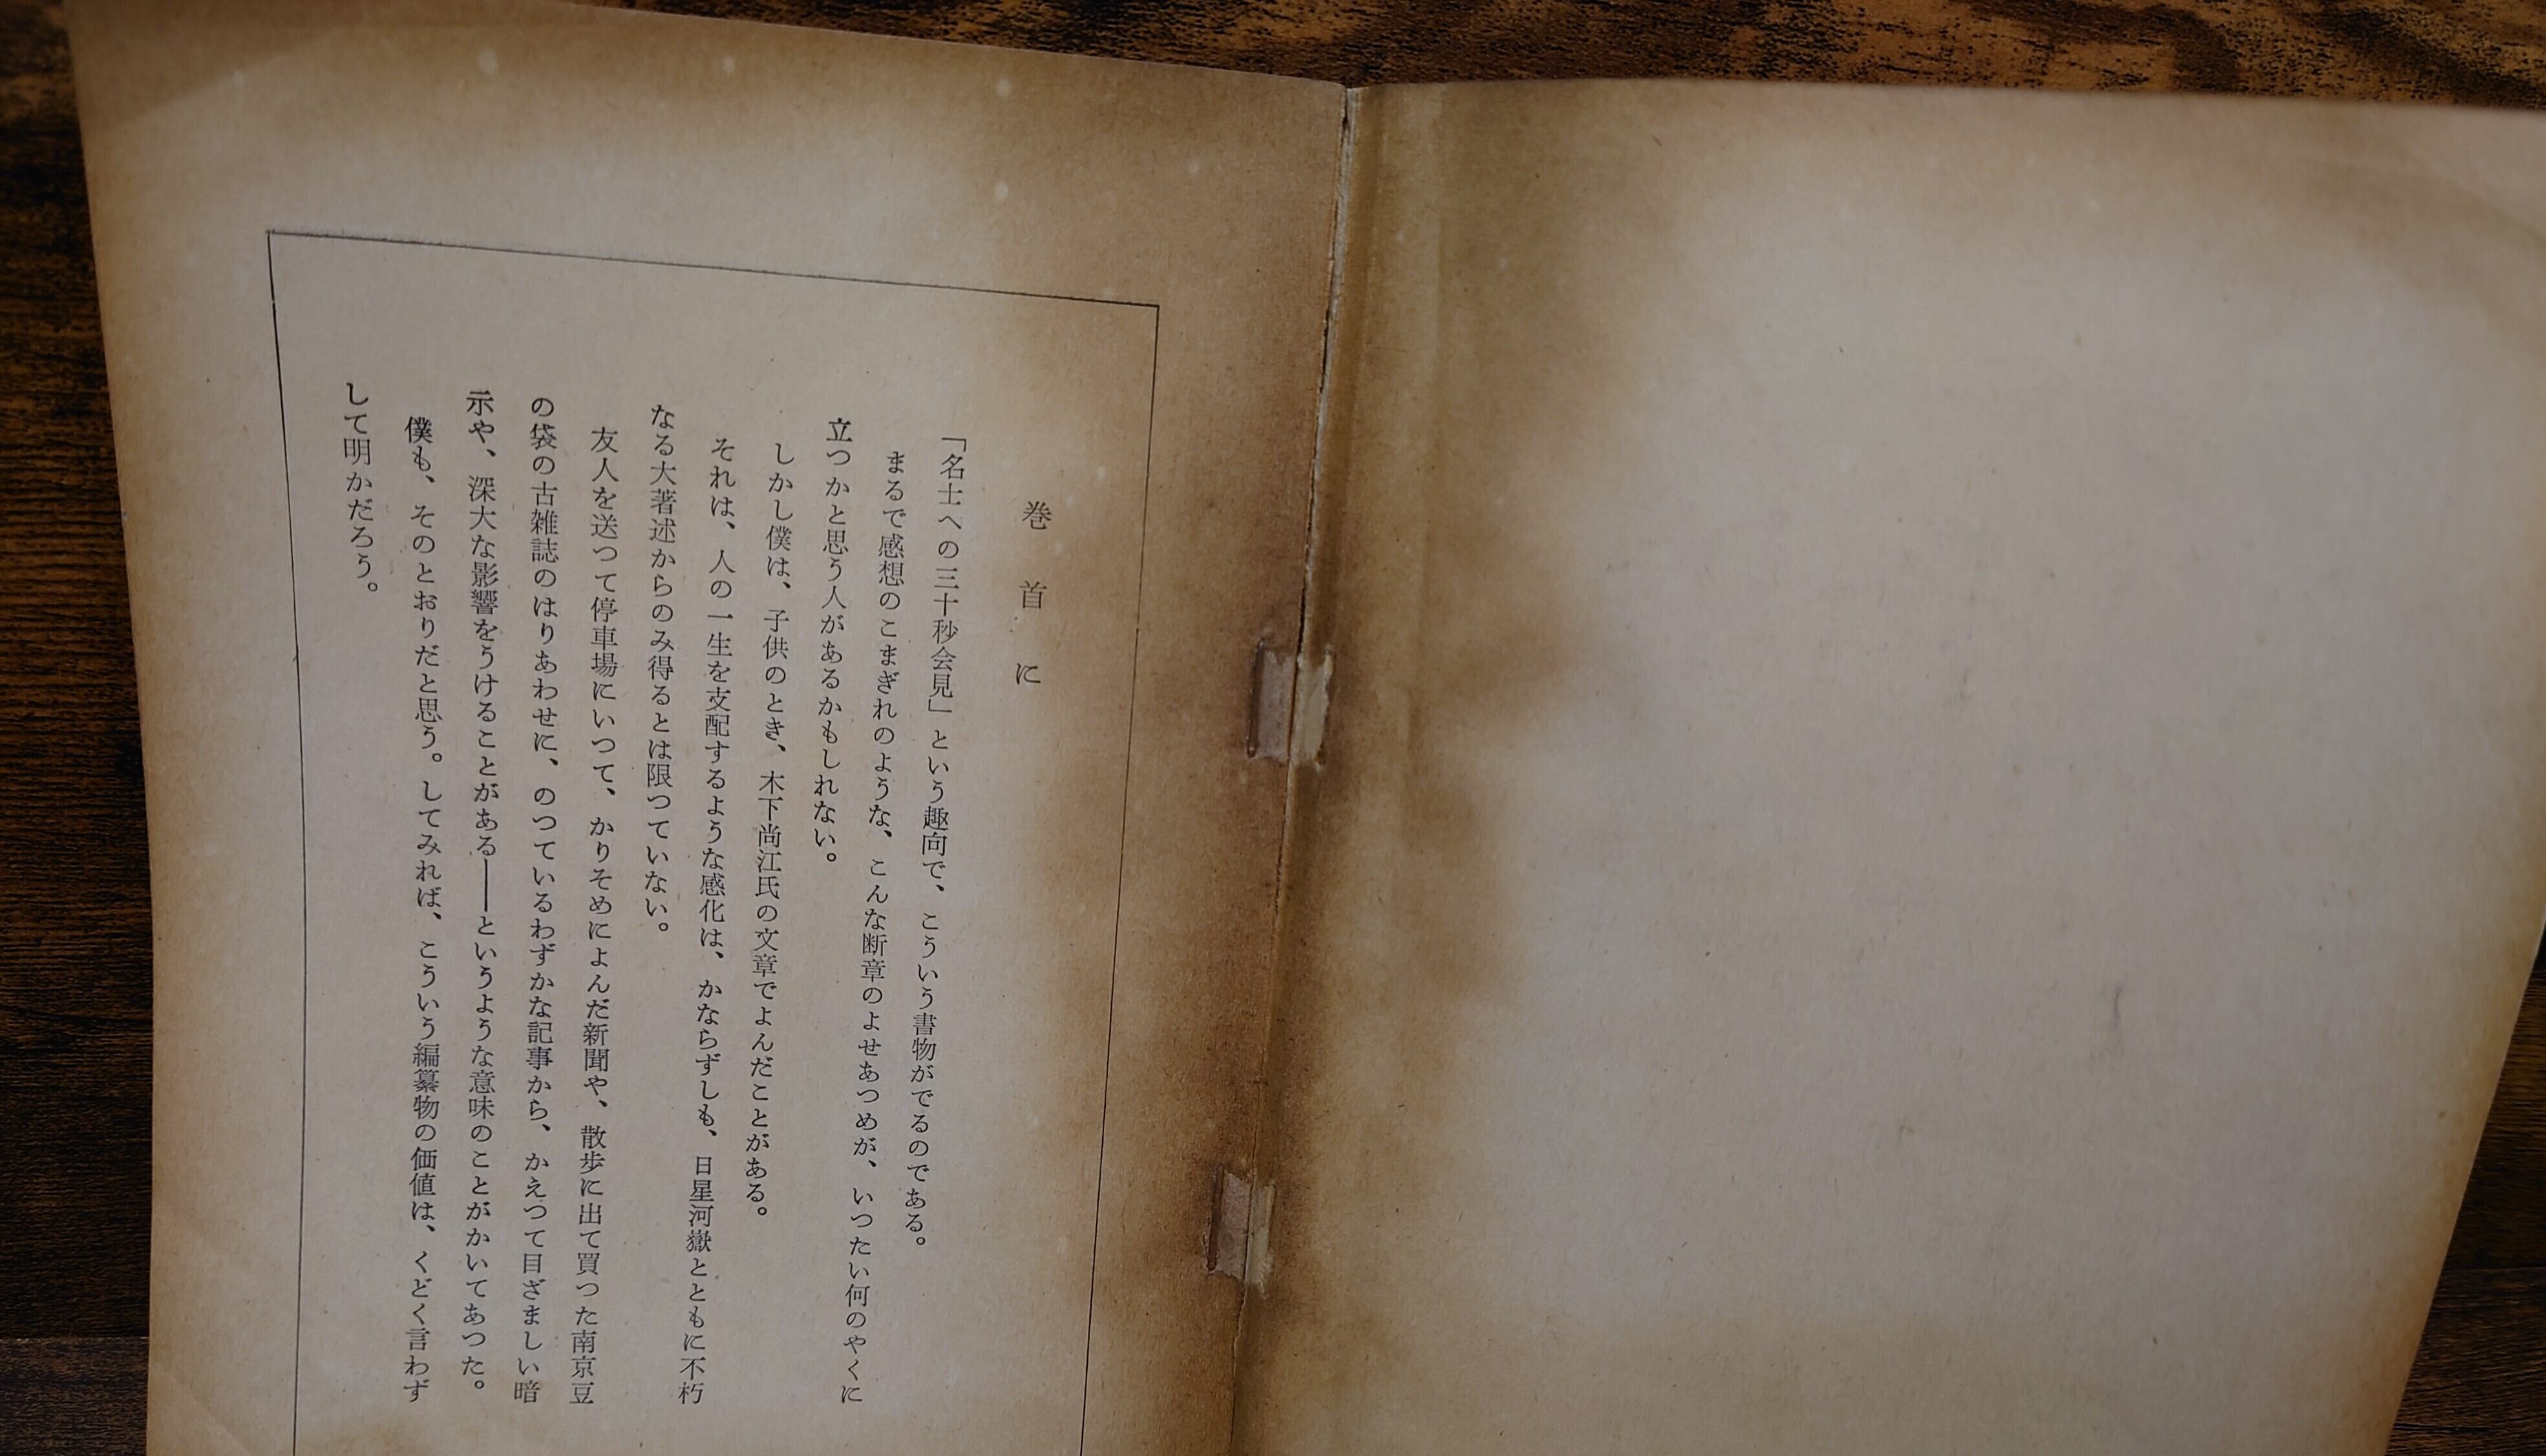 巻首に
「名士への三十秒会見」という趣向で、こういう書物がでるのである。
まるで感想のこまぎれのような、こんな断章のよせあつめが、いつたい何のやくに
立つかと思う人があるかもしれない。
しかし僕は、子供のとき、木下尚江氏の文章でよんだことがある。
それは、人の一生を支配するような感化は、かならずしも、日星河嶽とともに不朽
なる大著述からのみ得るとは限つていない。
友人を送つて停車場にいつて、かりそめによんだ新聞や、散歩に出て買つた南京豆
の袋の古雑誌のはりあわせに、のつているわずかな記事から、かえつて目ざましい暗
示や、深大な影響をうけることがある――というような意味のことがかいてあつた。
僕も、そのとおりだと思う。してみれば、こういう編纂物の価値は、くどく言わず
して明かだろう。